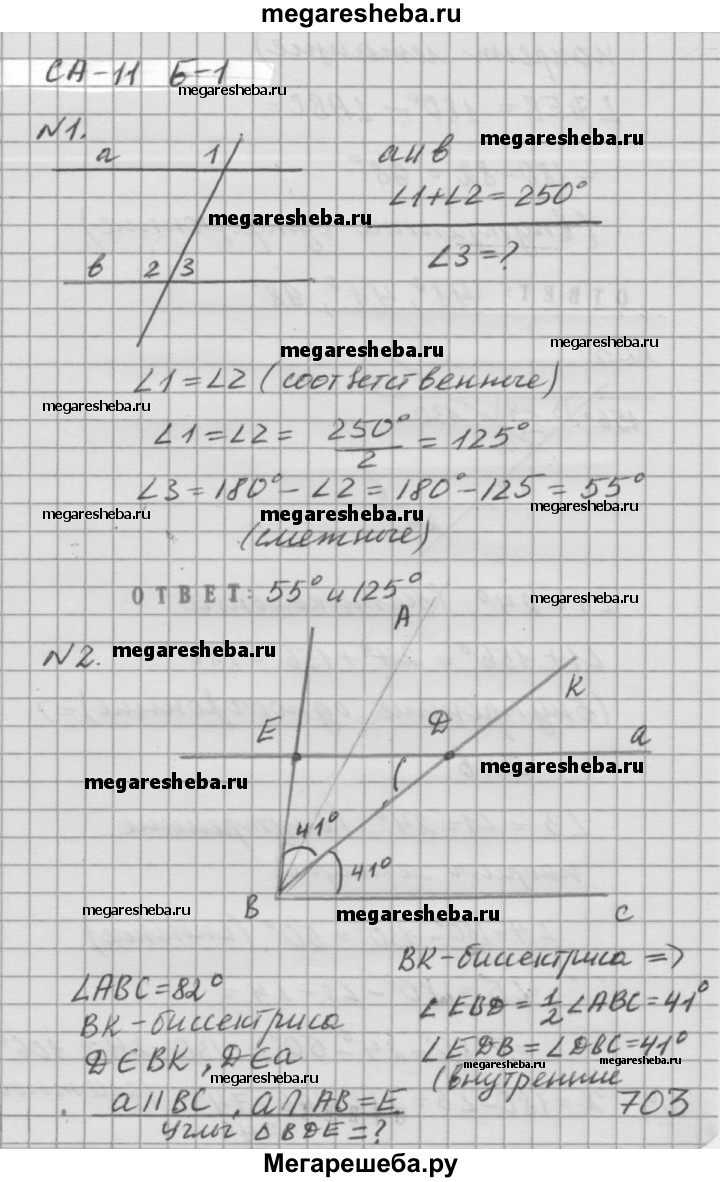 megaresheba.ru
СА-11 Б-1
megaresheba.ru
N1.
a 1
a||в
megaresheba.ru
∠1+∠2=250°
megaresheba.ru
∠3=?
в 2 3
megaresheba.ru
∠1=∠2 (соответственные)
megaresheba.ru
∠1=∠2= 250°/2 = 125°
∠3=180°-∠2=180°-125=55°
megaresheba.ru
megaresheba.ru
megaresheba.ru
(смежные)
ОТВЕТ: 55° и 125°
megaresheba.ru
A
N2.
megaresheba.ru
K
E
D
a
megaresheba.ru
megaresheba.ru
41°
41°
B
C
megaresheba.ru
megaresheba.ru
∠ABC=82°
BK-биссектриса
D∈BK, D∈a
megaresheba.ru
a||BC, a∩AB=E
углы ΔBDE=?
BK-биссектриса =>
megaresheba.ru
∠EBD=1/2∠ABC=41°
∠EDB=∠DBC=41°
megaresheba.ru
megaresheba.ru
(внутренние
703
Мегарешеба.ру